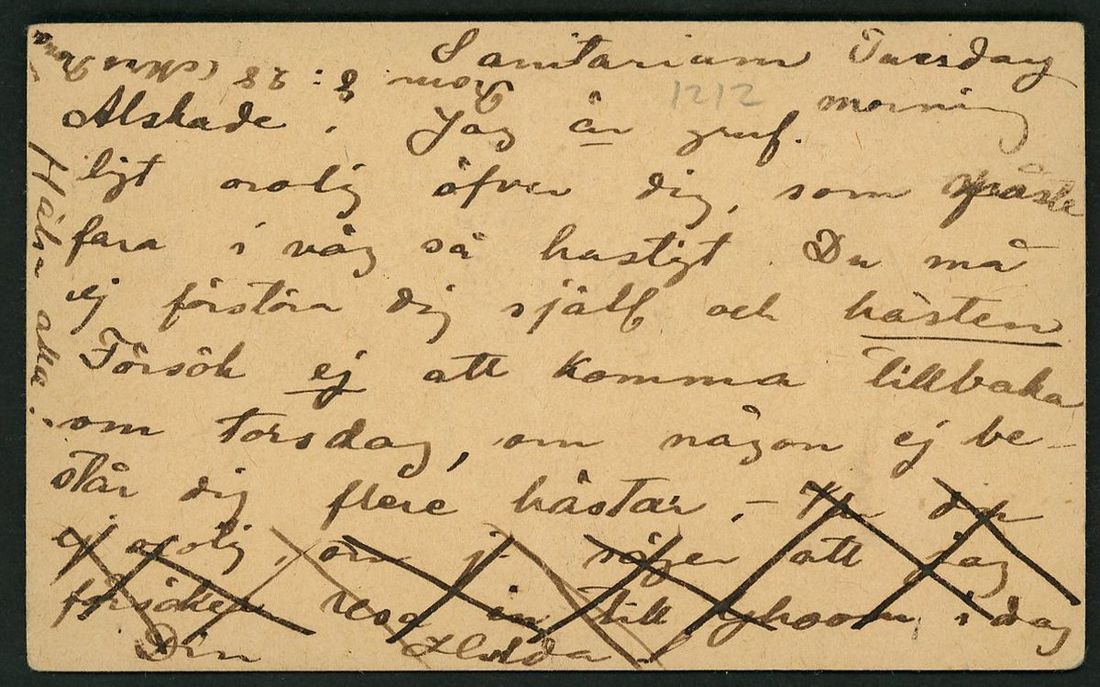 Sanitarium Tuesday
morning
1212
Älskade. Jag är gruf.
ligt orolig öfver dig, som måste
fara i väg så hastigt. Du må
ej förstöra dig själf och hästen
Försök ej att komma tillbaka
om torsdag, om någon ej be-
står dig flere hästar. –
ej orolig, om jag säger att jag
försöker resa in till i dag
Din Hulda.
Hälsa alla.
From 8: 28